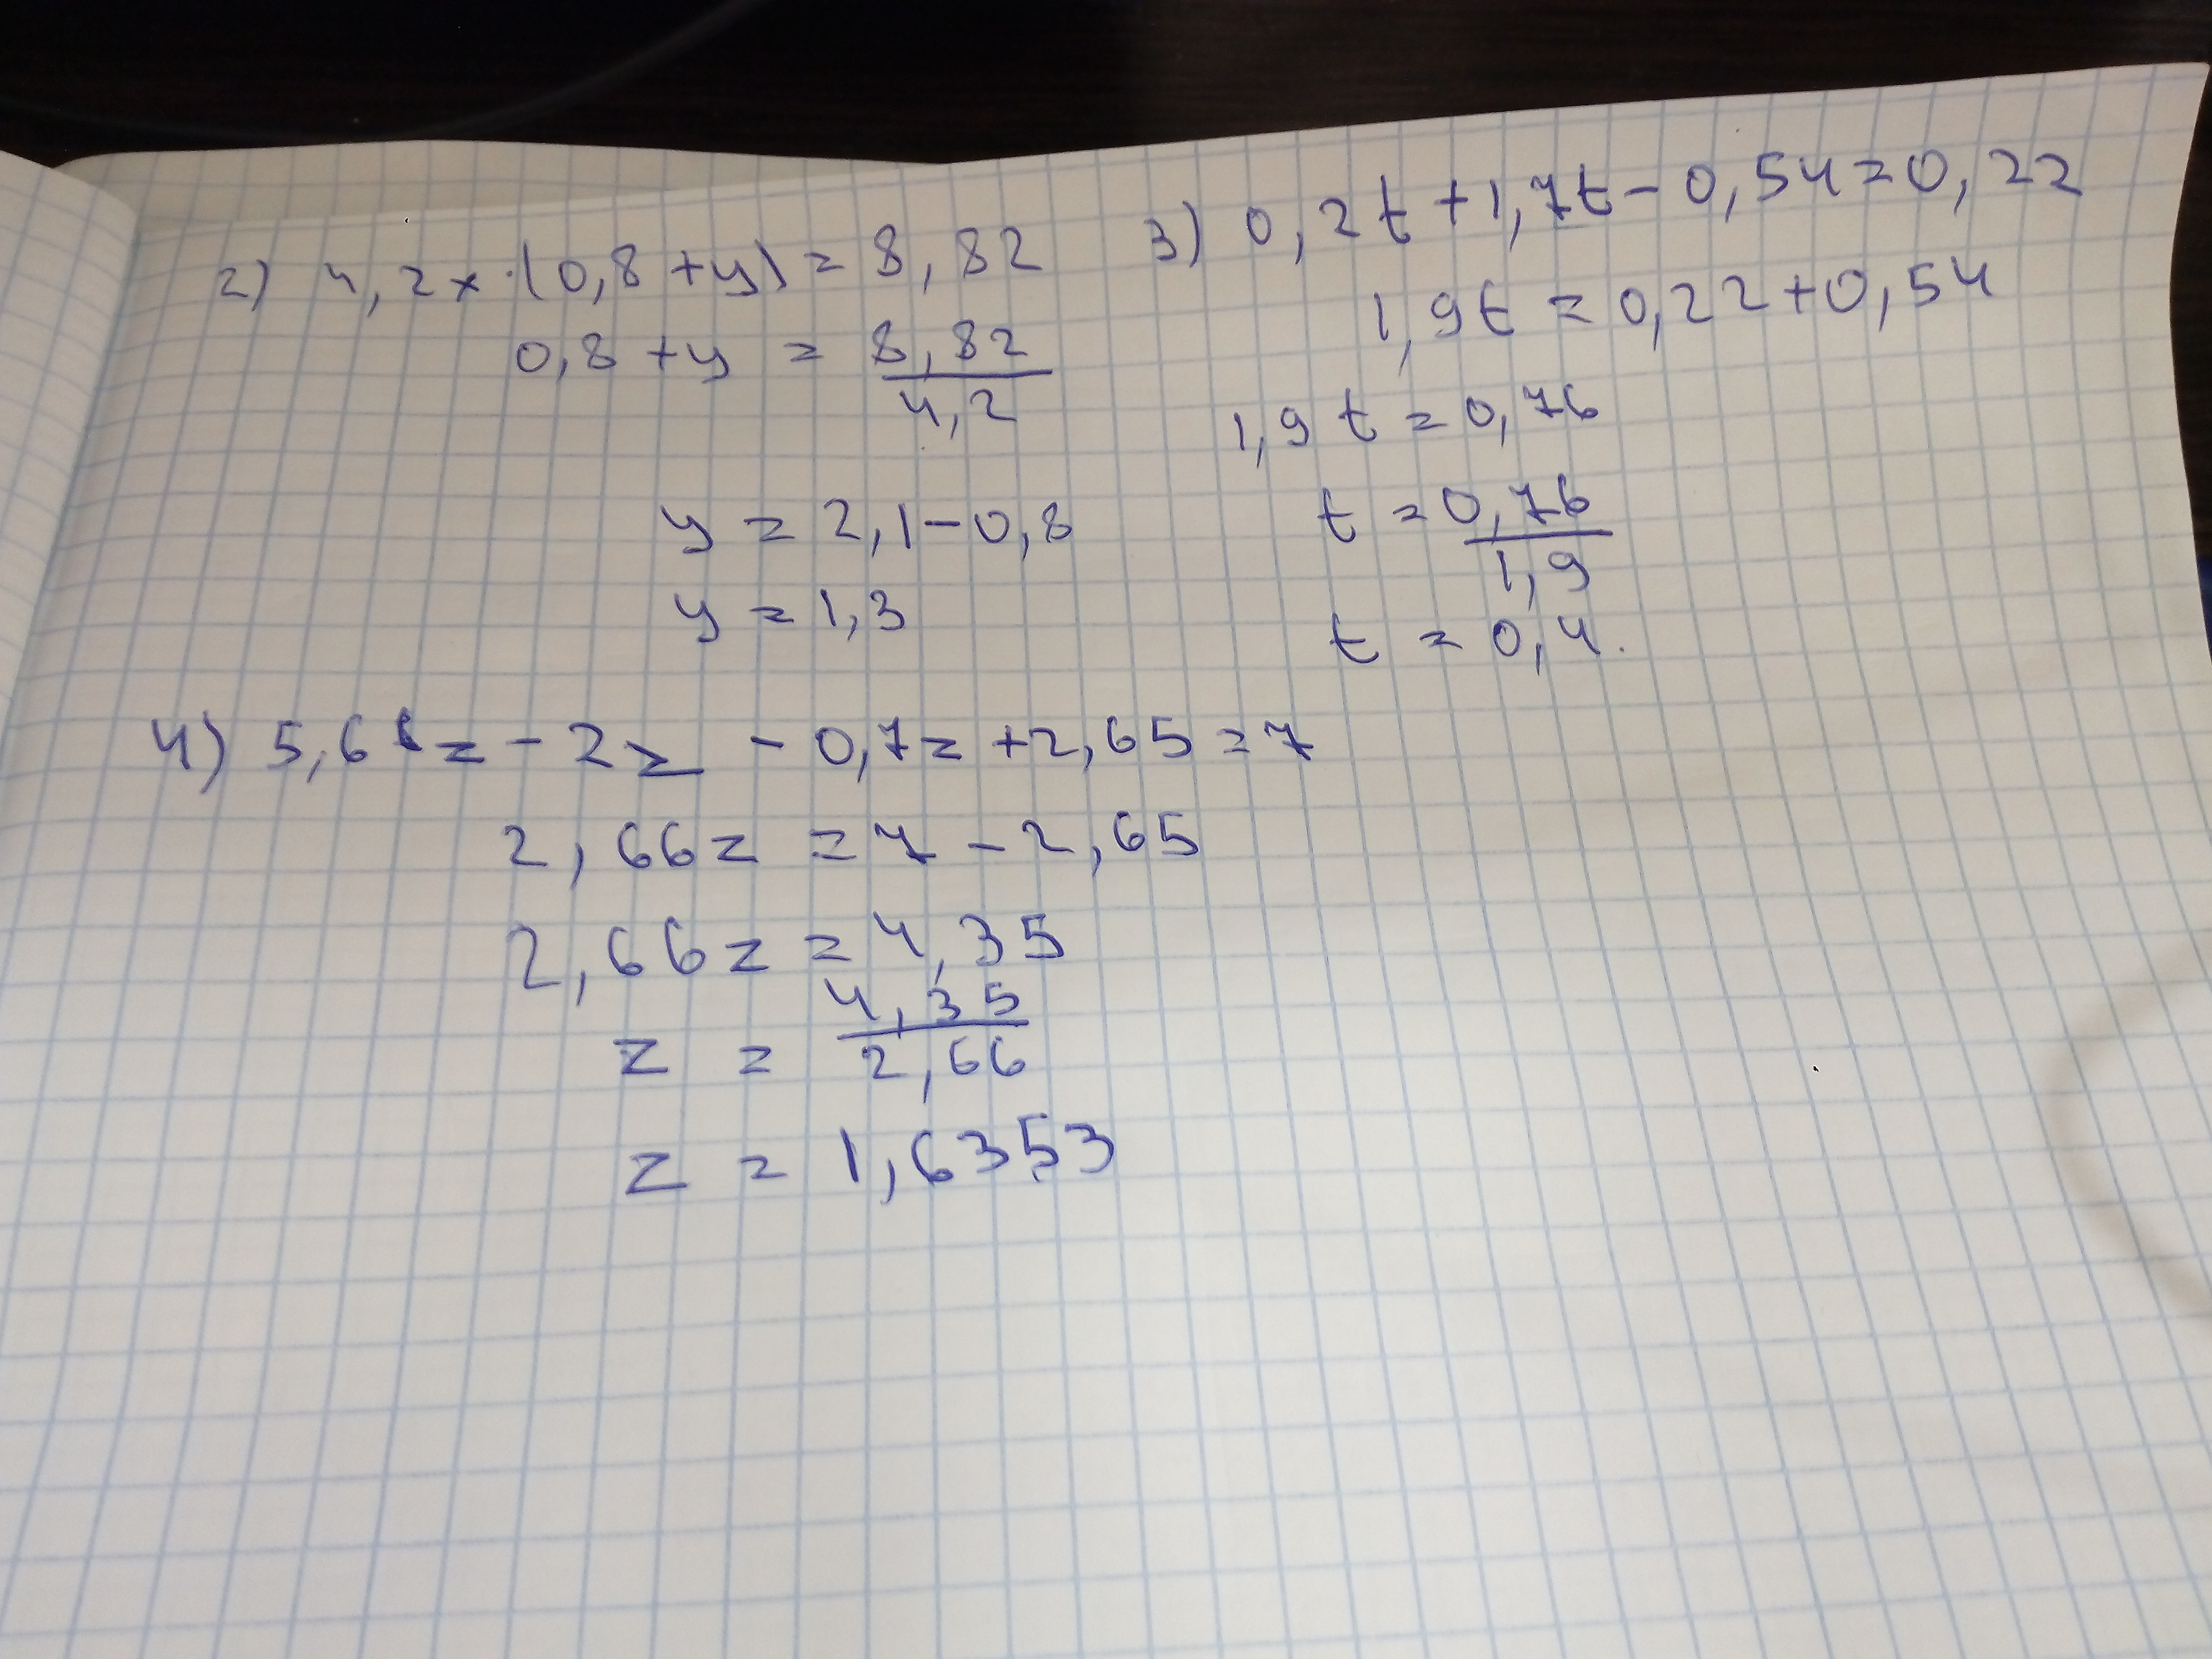 2) 4,2x·(0,8+y)=8,82
0,8+y = 8,82/4,2
y = 2,1-0,8
y = 1,3
3) 0,2t+1,7t-0,54=0,22
1,9t = 0,22+0,54
1,9t = 0,76
t = 0,76/1,9
t = 0,4.
4) 5,66z - 2z - 0,7z + 2,65 = 7
2,66z = 7 - 2,65
2,66z = 4,35
z = 4,35/2,66
z = 1,6353